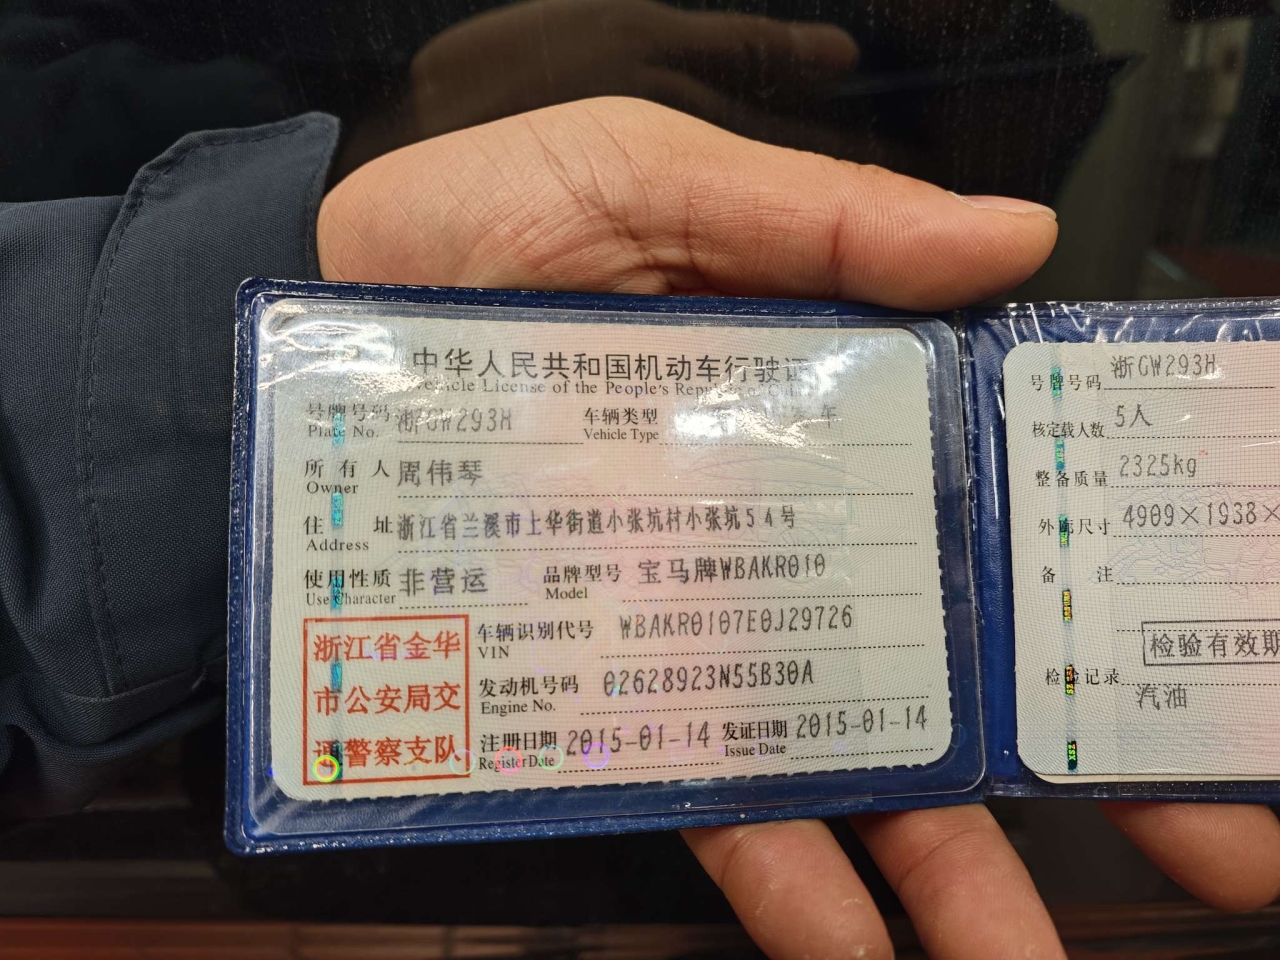 中华人民共和国机动车行驶证
Vehicle License of the People's Republic of China
号牌号码 浙GW293H 车辆类型
Plate No. Vehicle Type
所有人 周伟琴
Owner
住址 浙江省兰溪市上华街道小张坑村小张坑54号
Address
使用性质 非营运 品牌型号 宝马牌WBAKR010
Use Character Model
浙江省金华
市公安局交
通警察支队
车辆识别代号 WBAKR0107E0J29726
VIN
发动机号码 02628923N55B30A
Engine No.
注册日期 2015-01-14 发证日期 2015-01-14
Register Date Issue Date
号牌号码 浙GW293H
核定载人数 5人
整备质量 2325kg
外廓尺寸 4909×1938×
备注
检验有效期
检验记录
汽油